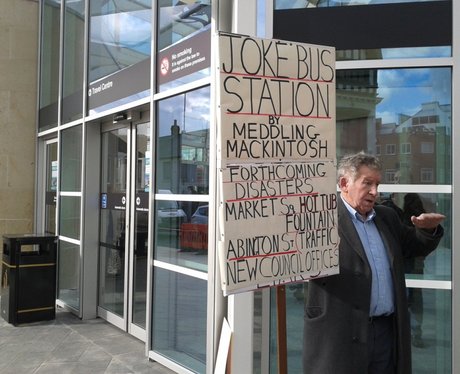 Travel Centre
No smoking
It is against the law to
smoke on these premises
JOKE 'BUS
STATION
BY
MEDDLING
MACKINTOSH
FORTHCOMING
DISASTERS
MARKET SQ HOT TUB
FOUNTAIN
ABINTON ST (TRAFFIC)
NEW COUNCIL OFFICES